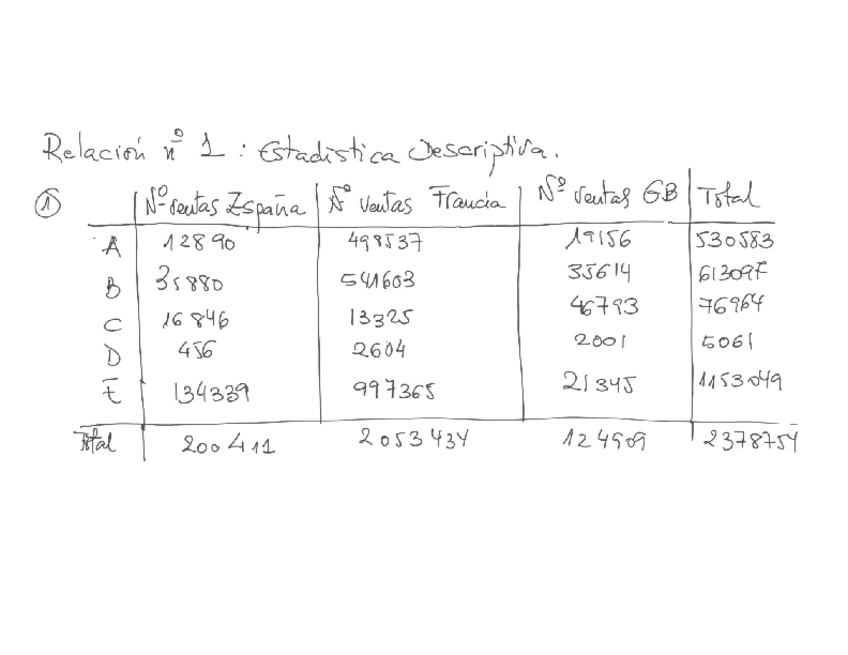 Relación nº 1 : Estadística Descriptiva.
① Nº ventas España Nº ventas Francia Nº ventas GB Total
A 12890 498537 19156 530583
B 35880 541603 35614 613097
C 16846 13325 46793 76964
D 456 2604 2001 5061
E 134339 997365 21345 1153049
Total 200411 2053434 124909 2378754